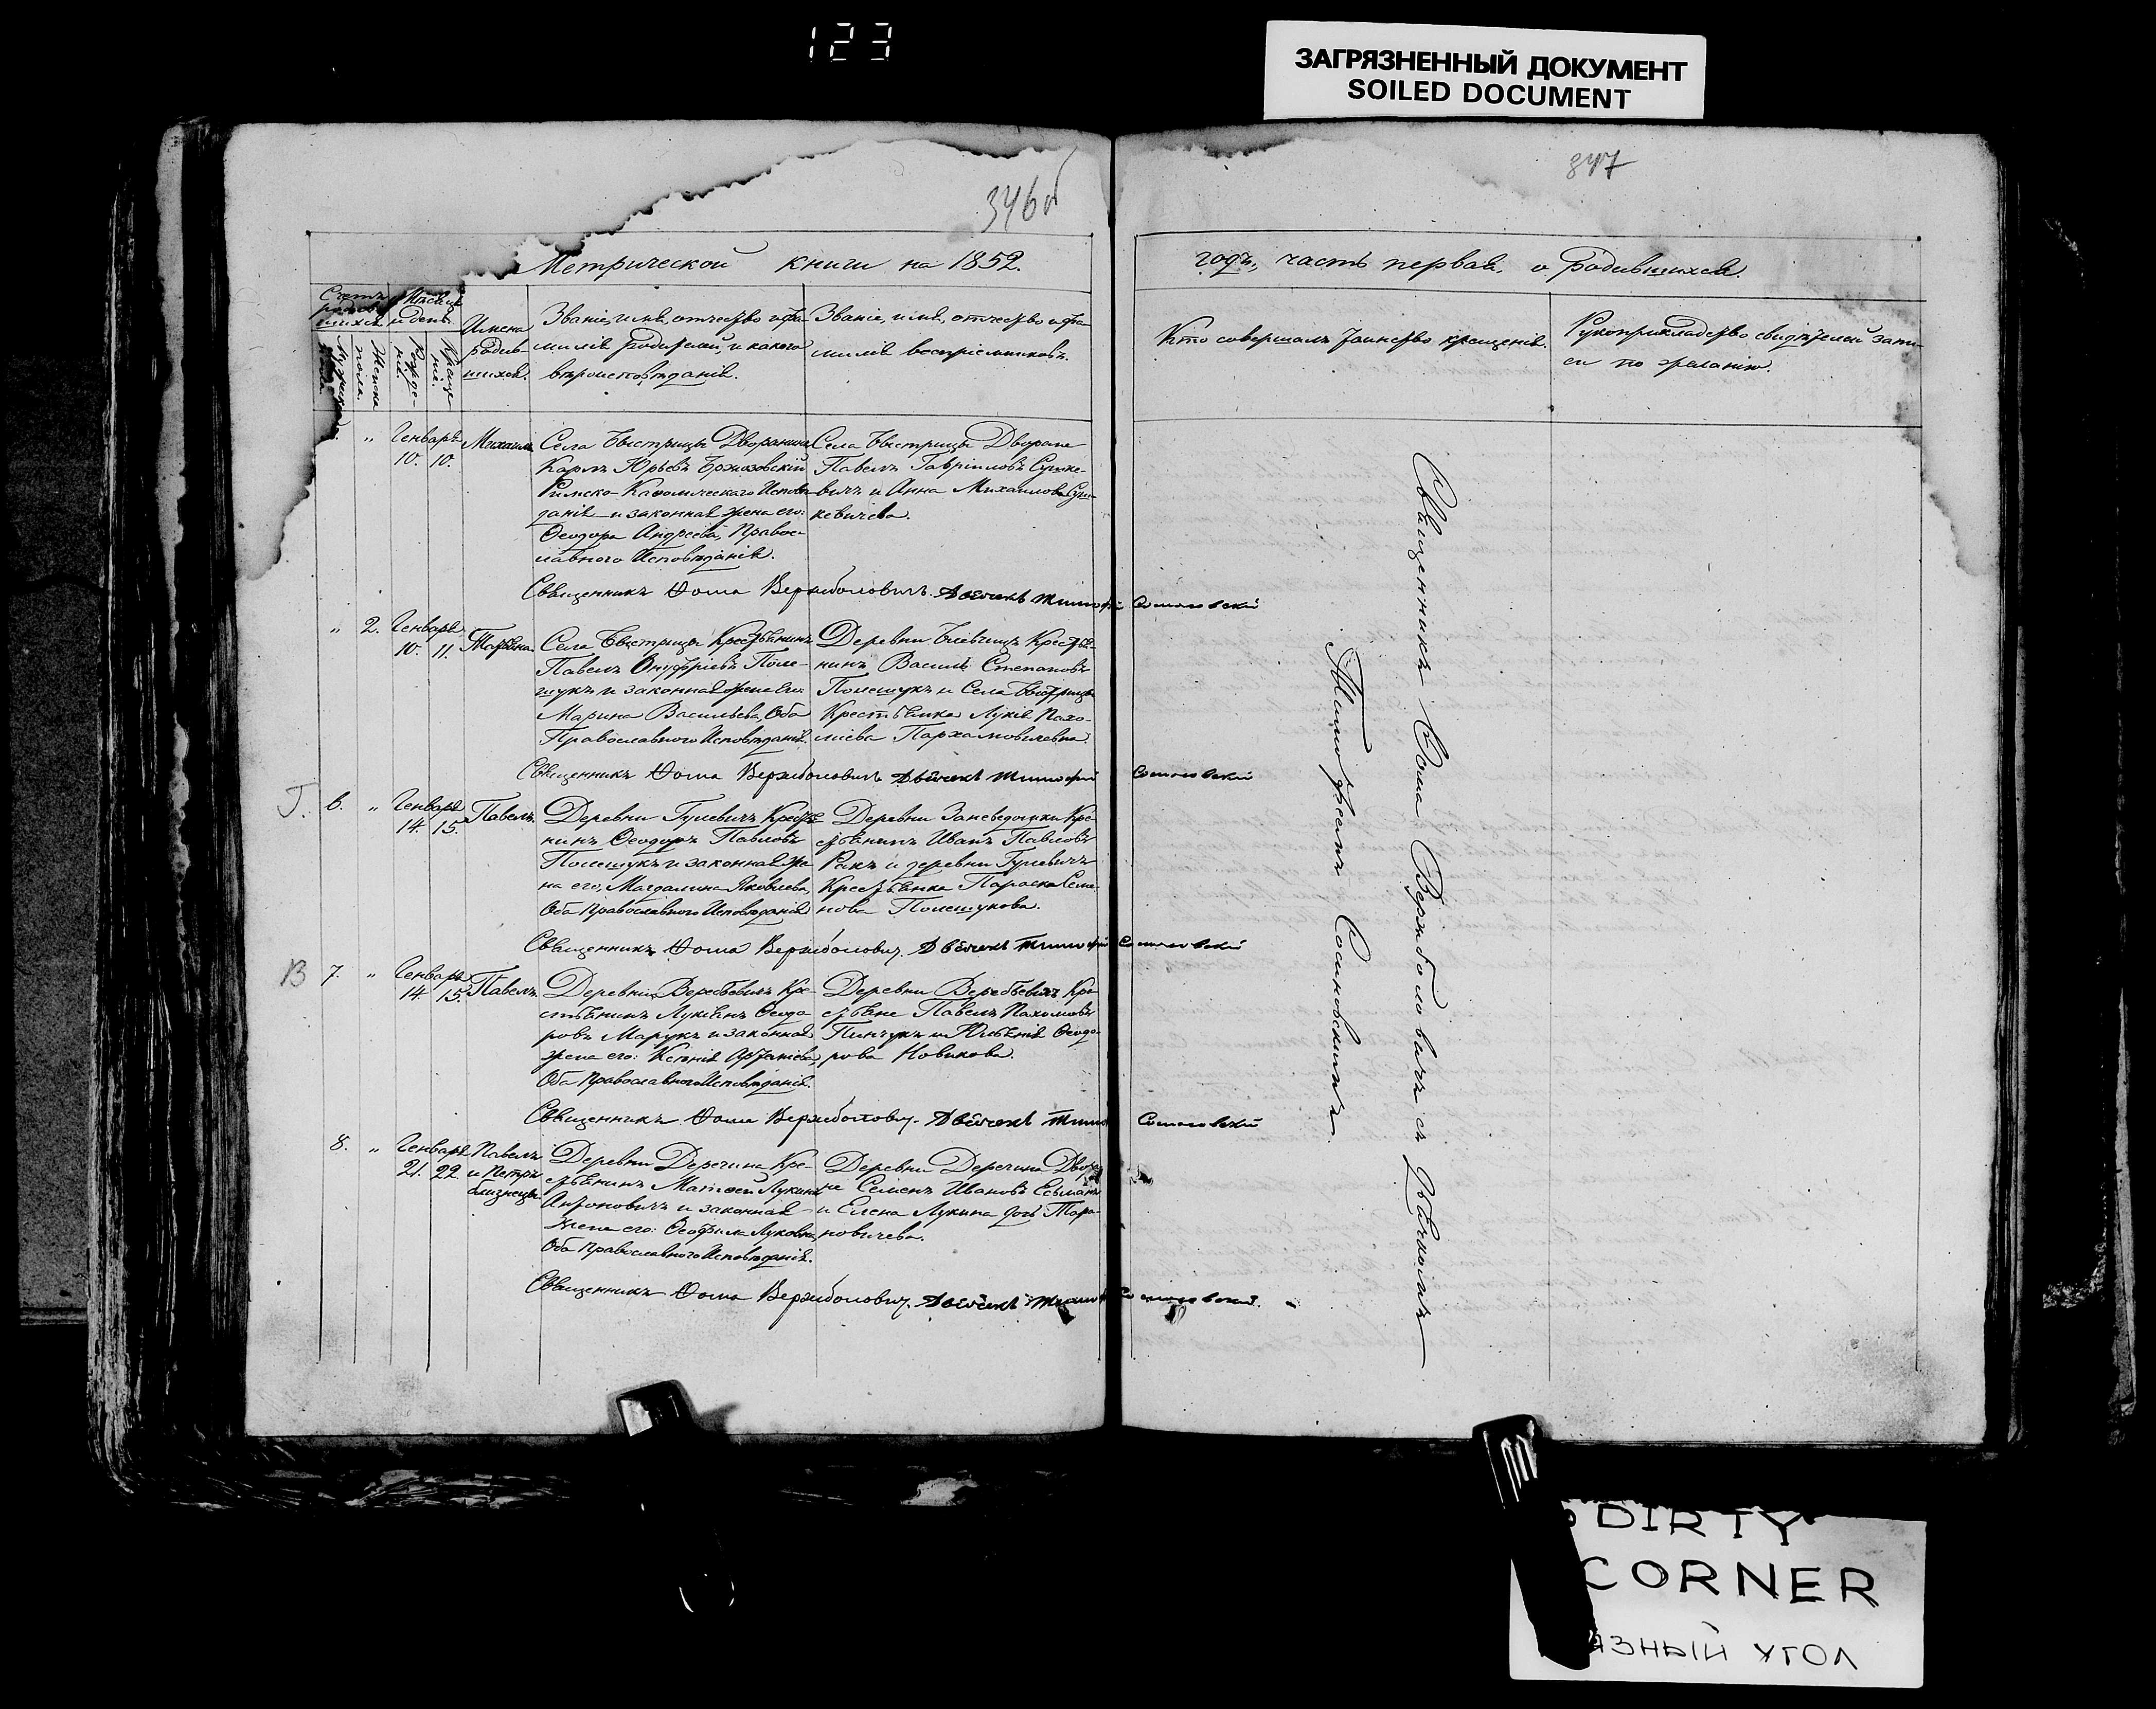 123
ЗАГРЯЗНЕННЫЙ ДОКУМЕНТ
SOILED DOCUMENT
346об
347
Метрической книги на 1852.
годъ, часть первая, о родившихся.
Счетъ родившихся
Мѣсяцъ и день
Мужеска пола.
Женска пола.
Рожденія.
Крещенія.
Имена родившихся.
Званіе, имя, отчество и фамилія родителей, и какого
вѣроисповѣданія.
Званіе, имя, отчество и фамилія воспріемниковъ.
Кто совершалъ таинство крещенія.
Рукоприкладство свидѣтелей записи по желанію.
„ Генваря
10. 10.
Михаилъ
Села Быстрицы Дворянинъ
Карлъ Юрьевъ Бржозовскій
Римско-Католическаго Исповѣданія и законная жена его:
Ѳеодора Андреева, Православнаго Исповѣданія.
Села Быстрицы Дворяне
Павелъ Гавріиловъ Сушкевичъ и Анна Михаилова Сушкевичева.
Священникъ Ѳома Вержболовичъ. Дьячекъ Тимофей Сосиновскій
„ 2. Генваря
10. 11.
Татьяна
Села Быстрицы Крестьянинъ
Павелъ Онуфріевъ Полешукъ и законная жена его:
Марина Васильева, Оба
Православнаго Исповѣданія.
Крестьянинъ Василь Степановъ
Полешукъ и Села Быстрицы
Крестьянка Лукія Пахоміева Пархамовичевна.
Священникъ Ѳома Вержболовичъ Дьячекъ Тимофей Сосиновскій
Г. 6. „ Генваря
14. 15.
Павелъ.
Деревни Гулевичъ Крестьянинъ Ѳеодоръ Павловъ
Полешукъ и законная жена его, Магдалина Яковлева,
Оба Православнаго Исповѣданія
Крестьянинъ Иванъ Павловъ
Ракъ и деревни Гулевичъ
Крестьянка Параска Семенова Полешукова.
Священникъ Ѳома Вержболовичъ. Дьячекъ Тимофей Сосиновскій
В 7. „ Генваря
14. 15.
Павелъ.
Деревни Веребьевичъ Крестьянинъ Лукіянъ Ѳеодоровъ Марукъ и законная
жена его: Ксенія
Оба Православнаго Исповѣданія.
Деревни Веребьевичъ Крестьяне Павелъ Пахомовъ
Пинчукъ и Юльянія Ѳеодорова Новикова.
Священникъ Ѳома Вержболовичъ. Дьячекъ Тимофей Сосиновскій
8. „ Генваря
21. 22.
Павелъ
и Петръ
близнецы
Деревни Деречина Крестьянинъ Матѳей Лукинъ
Антоновичъ и законная
жена его: Ѳеофила Луковна,
Оба Православнаго Исповѣданія.
Деревни Деречина Дворяне Семенъ Ивановъ Есьманъ
и Елена Лукина дочь Тарановичева.
Священникъ Ѳома Вержболовичъ. Дьячекъ Тимофей Сосиновскій.
Священникъ Ѳома Вержболовичъ съ Дьячкомъ
Тимофеемъ Сосиновскимъ.
DIRTY
CORNER
ЯЗНЫЙ УГОЛ